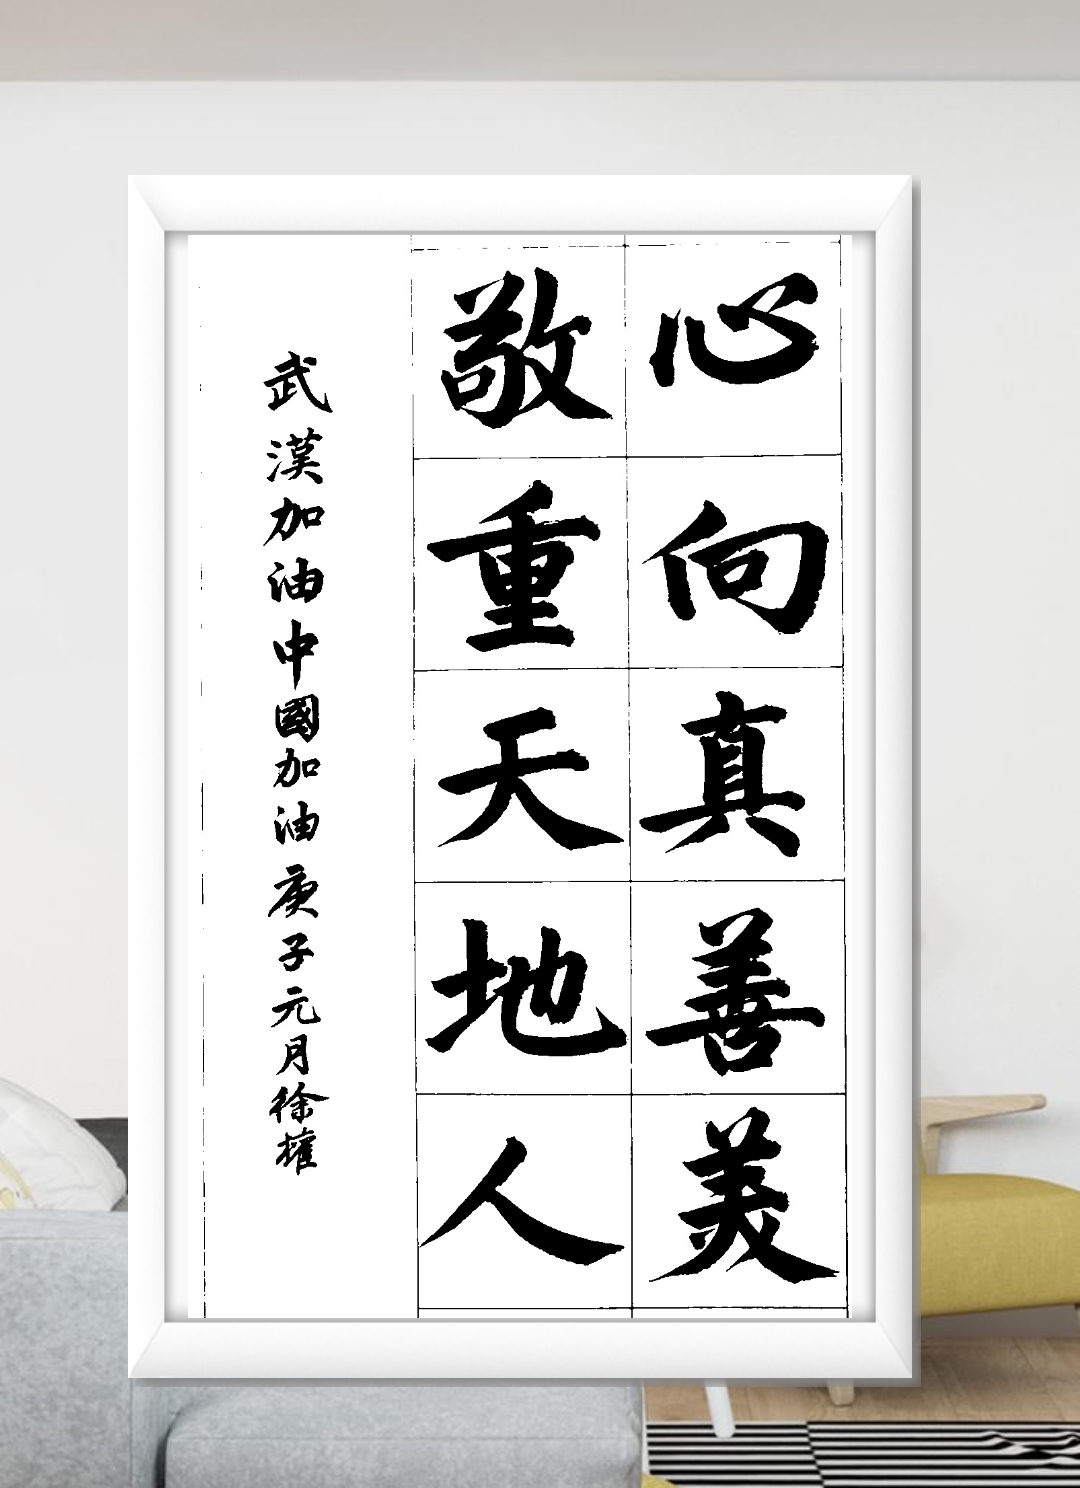 心向真善美
敬重天地人
武漢加油中國加油庚子元月徐權